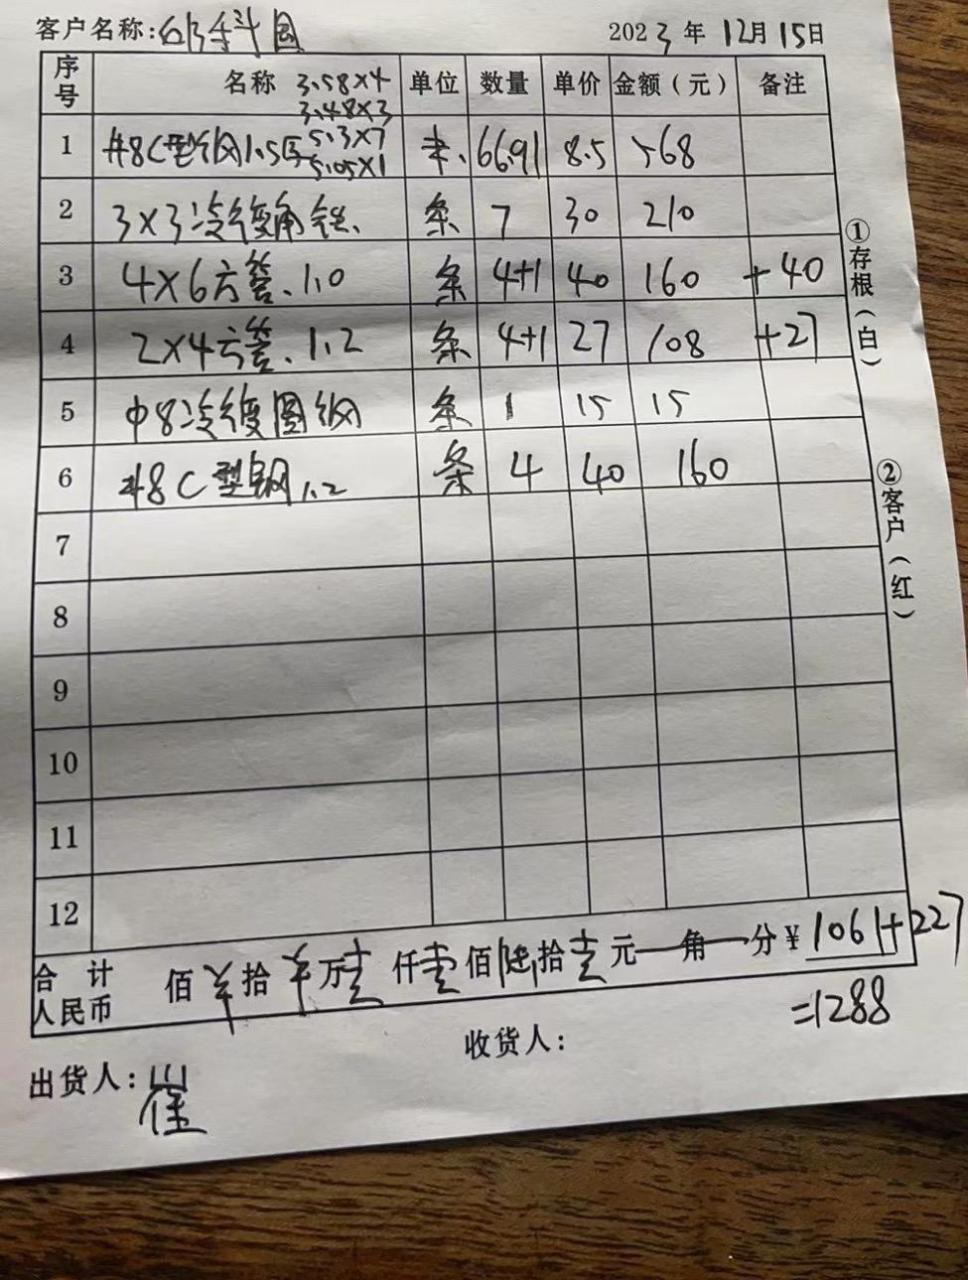 客户名称: 2023年12月15日
序号 名称 3.58×4 单位 数量 单价 金额（元） 备注
3.48×3
5.3×7
1 #8C型钢1.5厚 米. 66.91 8.5 568
5.05×1
2 3×3冷镀角铁. 条 7 30 210
3 4×6方管. 1.0 条 4+1 40 160 +40
4 2×4方管. 1.2 条 4+1 27 108 +27
5 中8冷镀圆钢 条 1 15 15
6 #8C型钢1.2 条 4 40 160
7
8
9
10
11
12
合计人民币 佰¥拾¥万壹仟壹佰陆拾壹元一角一分¥1061+227
=1288
收货人:
出货人:崔
①存根（白）
②客户（红）